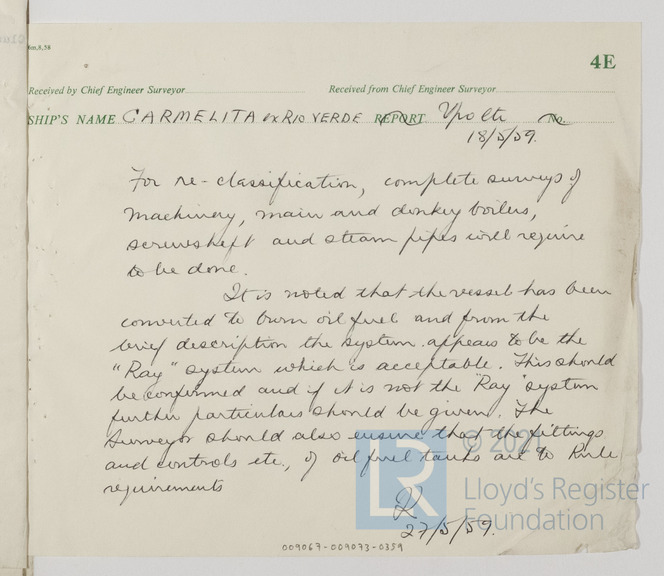 6m,8,58
4E
Received by Chief Engineer Surveyor
Received from Chief Engineer Surveyor
SHIP'S NAME CARMELITA ex RIO VERDE REPORT Y'polte No.
18/5/59.
For re-classification, complete surveys of
machinery, main and donkey boilers,
screwshaft and steam pipes will require
to be done.
It is noted that the vessel has been
converted to burn oil fuel and from the
brief description the system appears to be the
"Ray" system which is acceptable. This should
be confirmed and if it is not the "Ray" system
further particulars should be given. The
Surveyor should also ensure that the fittings
and controls etc., of oil fuel tanks are to Rule
requirements
27/5/59.
© 2021
LR
Lloyd's Register
Foundation
009067-009073-0359